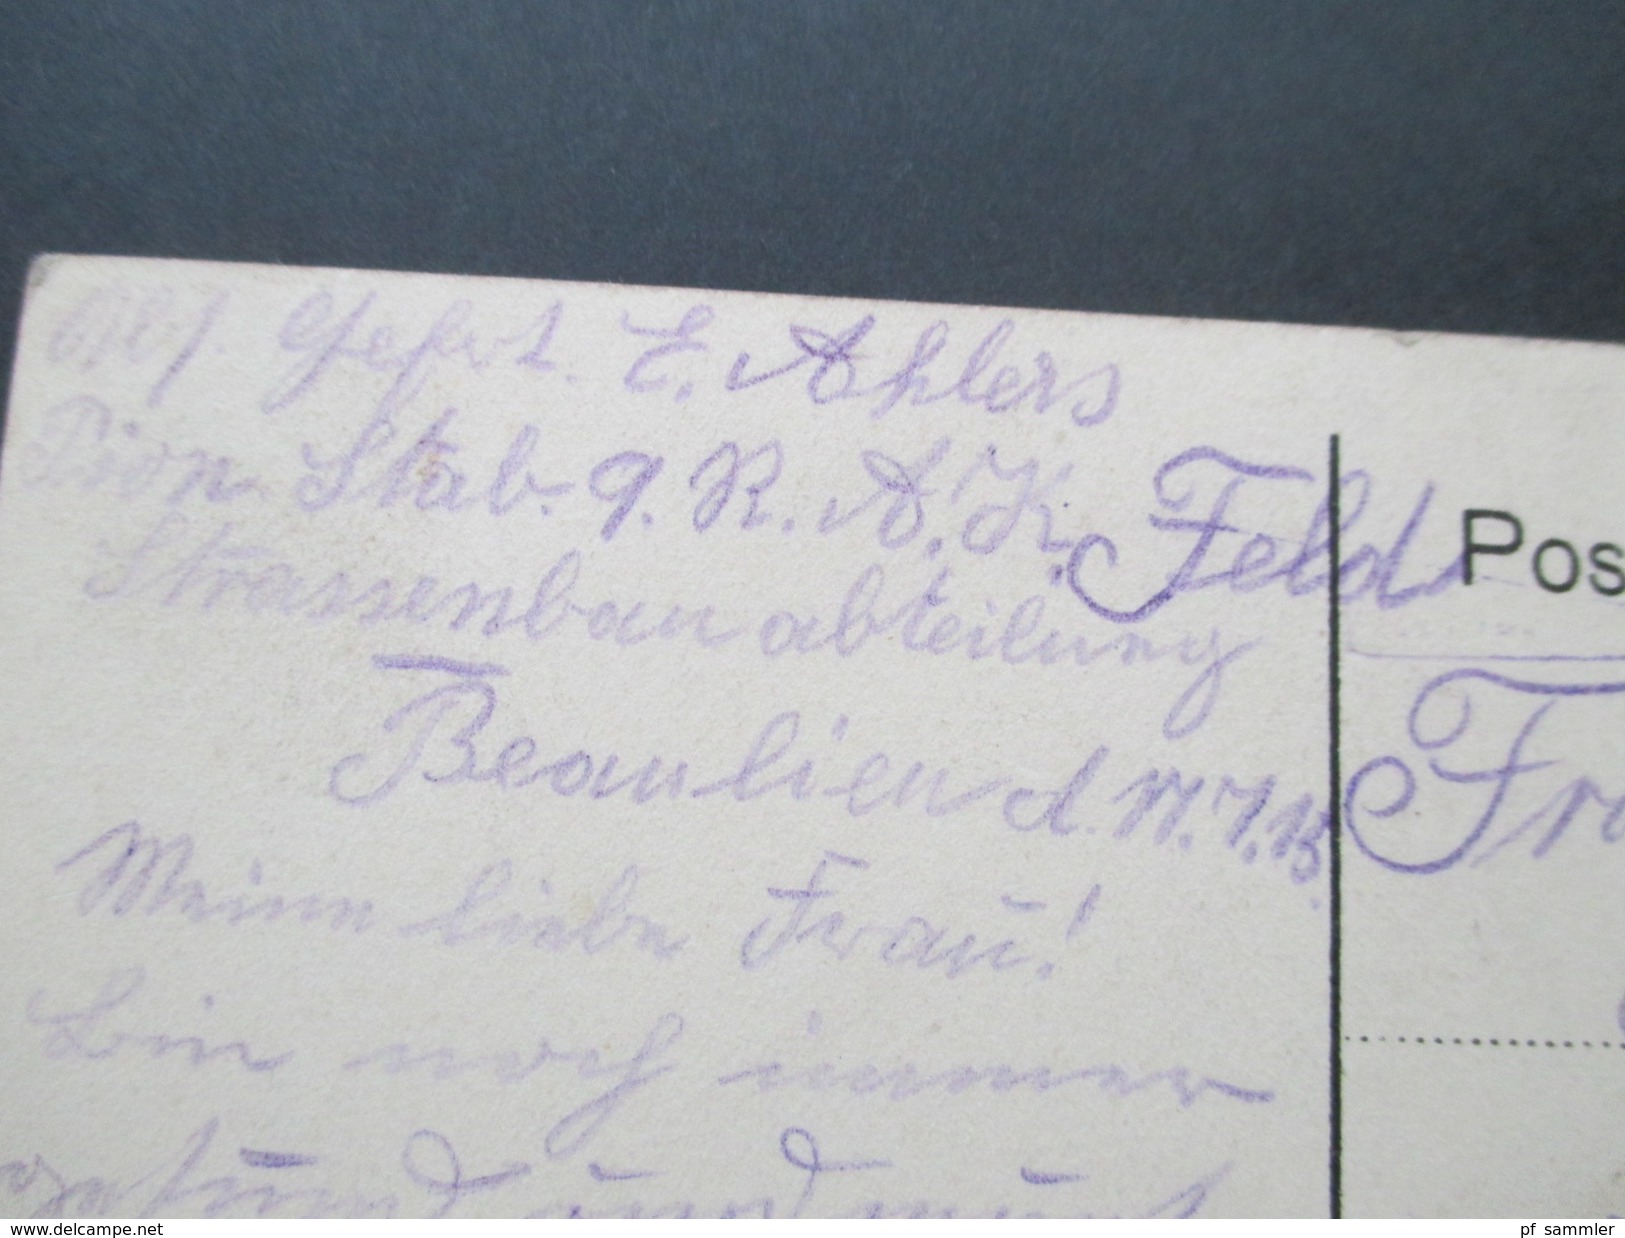 Gefrt. E. Ahlers
Pion. Stab. 9. R. A. K.
Strassenbauabteilung
Beaulieu d. 17.7.15
Meine liebe Frau!
Bin noch immer
gesund und
Feld
Pos
Fra
www.delcampe.net
pf_sammler